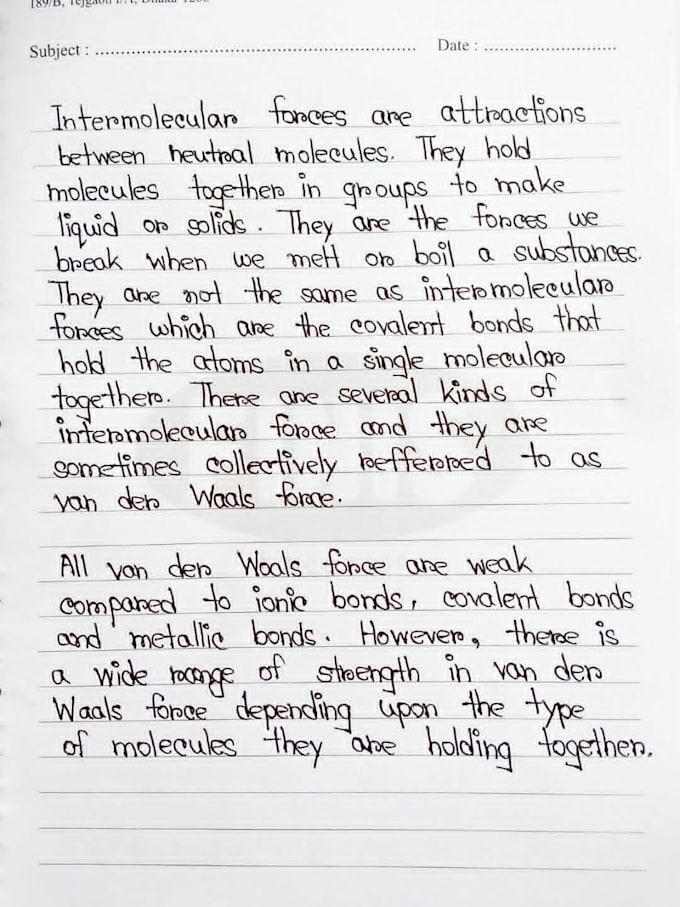 189/B, Tejgaon I/A, Dhaka-1208
Subject : Date :
Intermolecular forces are attractions
between neutral molecules. They hold
molecules together in groups to make
liquid or solids. They are the forces we
break when we melt or boil a substances.
They are not the same as intermolecular
forces which are the covalent bonds that
hold the atoms in a single molecular
together. There are several kinds of
intermolecular force and they are
sometimes collectively refferred to as
van der Waals force.
All van der Waals force are weak
compared to ionic bonds, covalent bonds
and metallic bonds. However, there is
a wide range of strength in van der
Waals force depending upon the type
of molecules they are holding together.